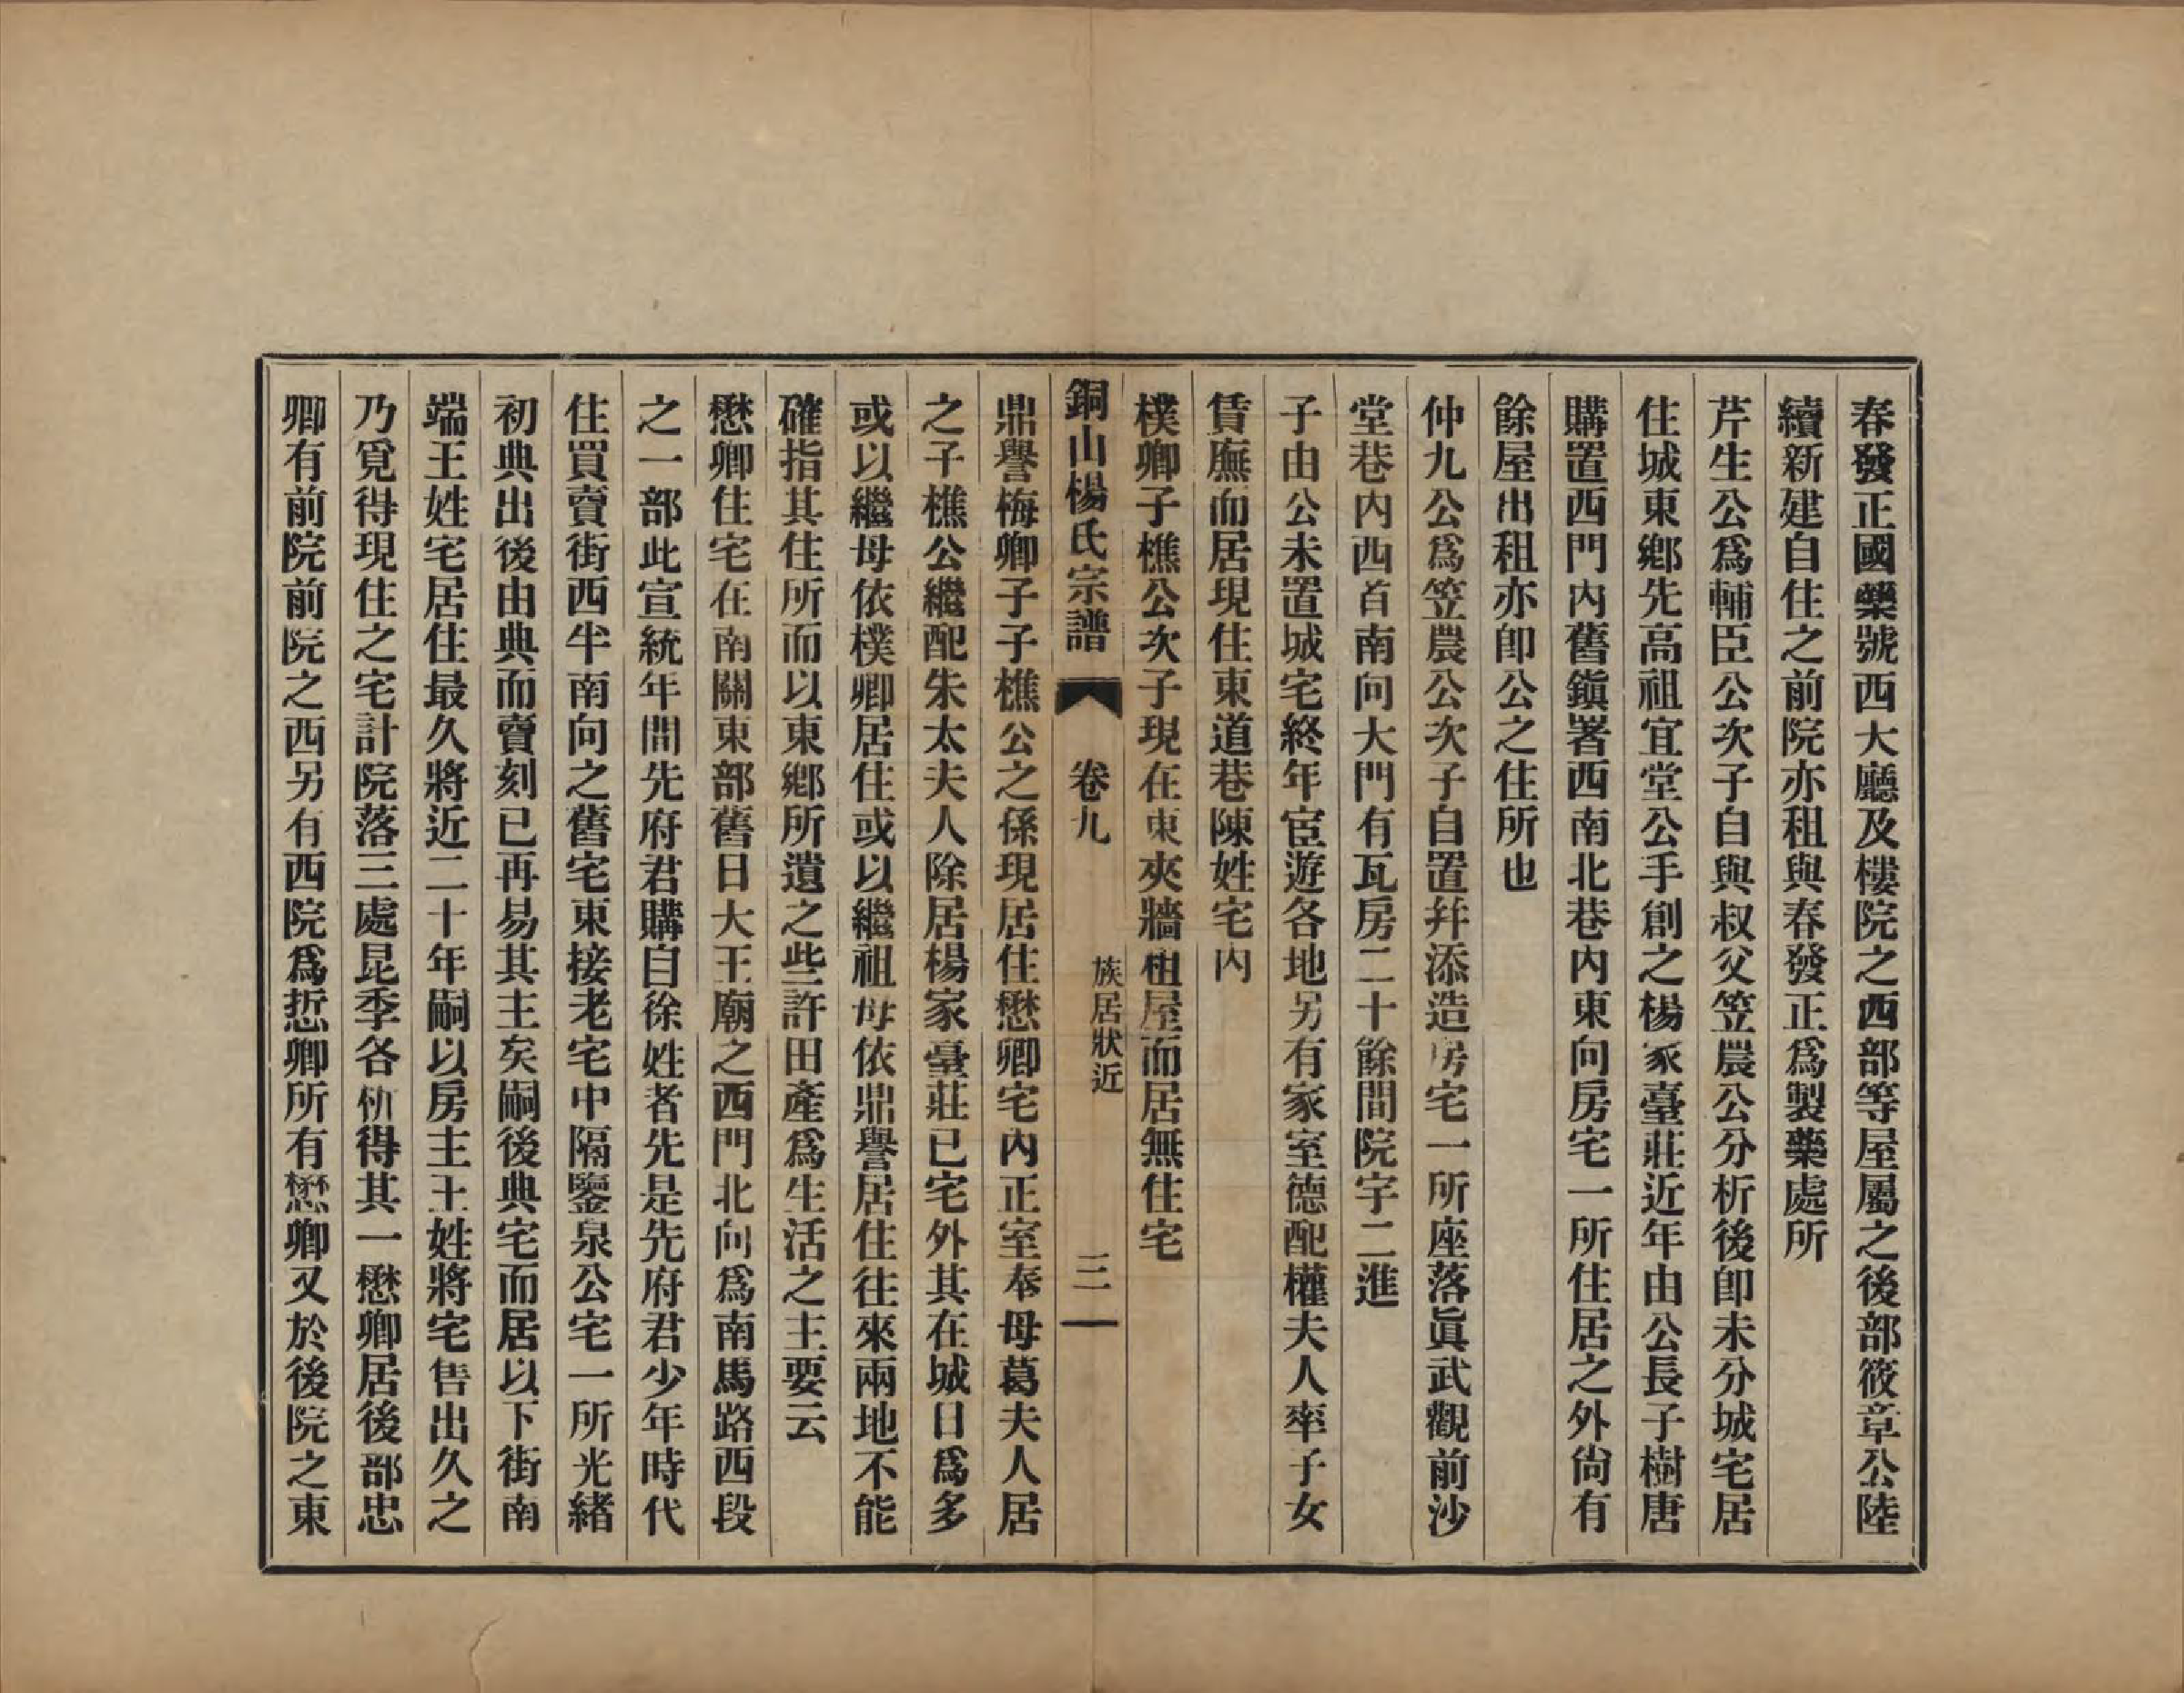 春發正國藥號西大廳及樓院之西部等屋屬之後部筱章公陸
續新建自住之前院亦租與春發正爲製藥處所
芹生公爲輔臣公次子自與叔父笠農公分析後卽未分城宅居
住城東鄕先高祖宜堂公手創之楊家臺莊近年由公長子樹唐
購置西門內舊鎭署西南北巷內東向房宅一所住居之外尙有
餘屋出租亦卽公之住所也
仲九公爲笠農公次子自置幷添造房宅一所座落眞武觀前沙
堂巷內西首南向大門有瓦房二十餘間院宇二進
子由公未置城宅終年宦遊各地另有家室德配權夫人率子女
賃廡而居現住東道巷陳姓宅內
樸卿子樵公次子現在東夾牆租屋而居無住宅
銅山楊氏宗譜 卷九 族居狀近 三
鼎譽梅卿子子樵公之孫現居住懋卿宅內正室奉母葛夫人居
之子樵公繼配朱太夫人除居楊家臺莊已宅外其在城日爲多
或以繼母依樸卿居住或以繼祖母依鼎譽居住往來兩地不能
確指其住所而以東鄕所遺之些許田產爲生活之主要云
懋卿住宅在南關東部舊日大王廟之西門北向爲南馬路西段
之一部此宣統年間先府君購自徐姓者先是先府君少年時代
住買賣街西半南向之舊宅東接老宅中隔鑒泉公宅一所光緒
初典出後由典而賣刻已再易其主矣嗣後典宅而居以下街南
端王姓宅居住最久將近二十年嗣以房主王姓將宅售出久之
乃覓得現住之宅計院落三處昆季各析得其一懋卿居後部忠
卿有前院前院之西另有西院爲悊卿所有懋卿又於後院之東